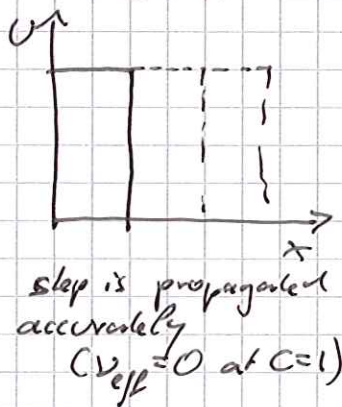 U
x
step is propagated
accurately
(ν_eff = 0 at C=1)